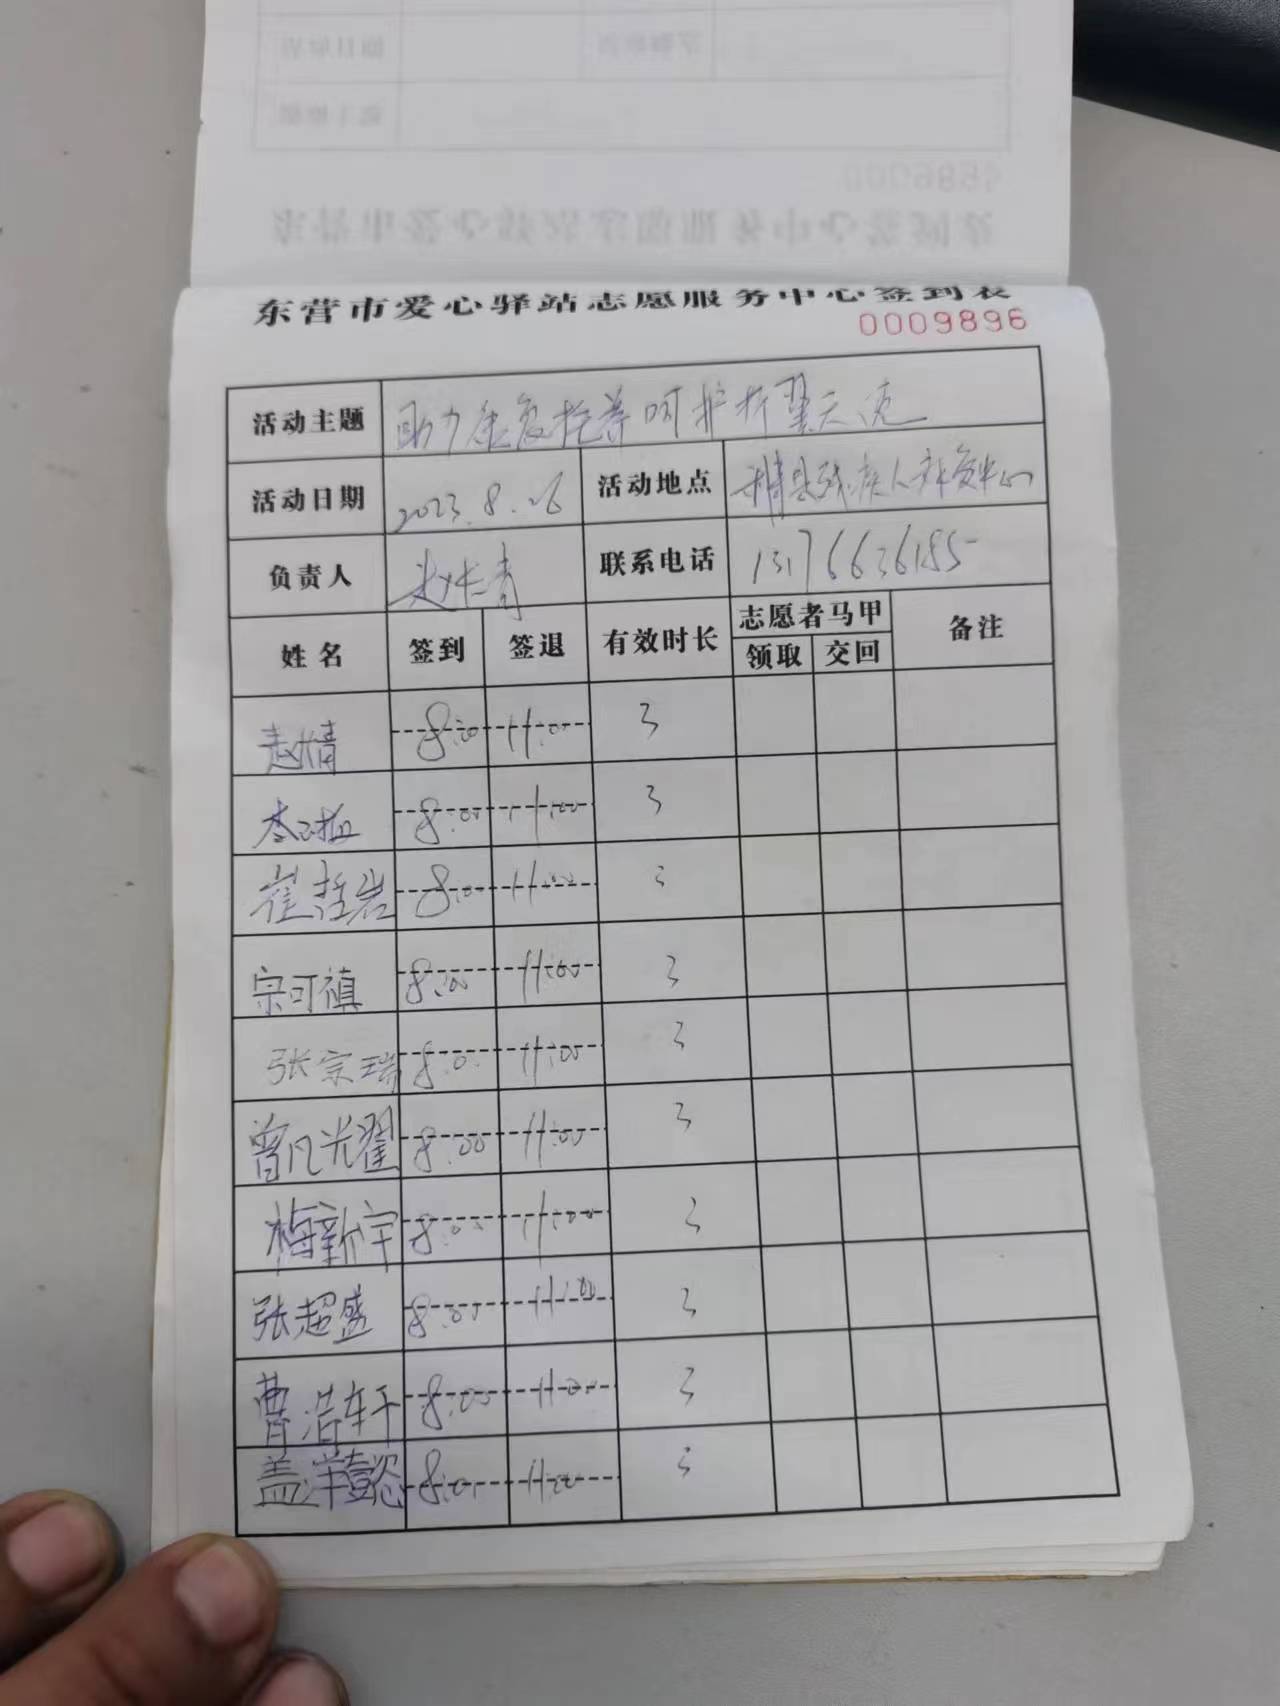 东营市爱心驿站志愿服务中心签到表
0009896
活动主题 助力康复托养呵护折翼天使
活动日期 2023.8.26 活动地点 利津县残疾人康复中心
负责人 赵长青 联系电话 13176636185
姓名 签到 签退 有效时长 志愿者马甲 备注
领取 交回
8:00 11:00 3
8:00 11:00 3
崔哲岩 8:00 11:00 3
宗可禛 8:00 11:00 3
张宗瑞 8:00 11:00 3
曾凡光翟 8:00 11:00 3
梅新宇 8:00 11:00 3
张超盛 8:00 11:00 3
曹浩轩 8:00 11:00 3
盖洋懿 8:00 11:00 3